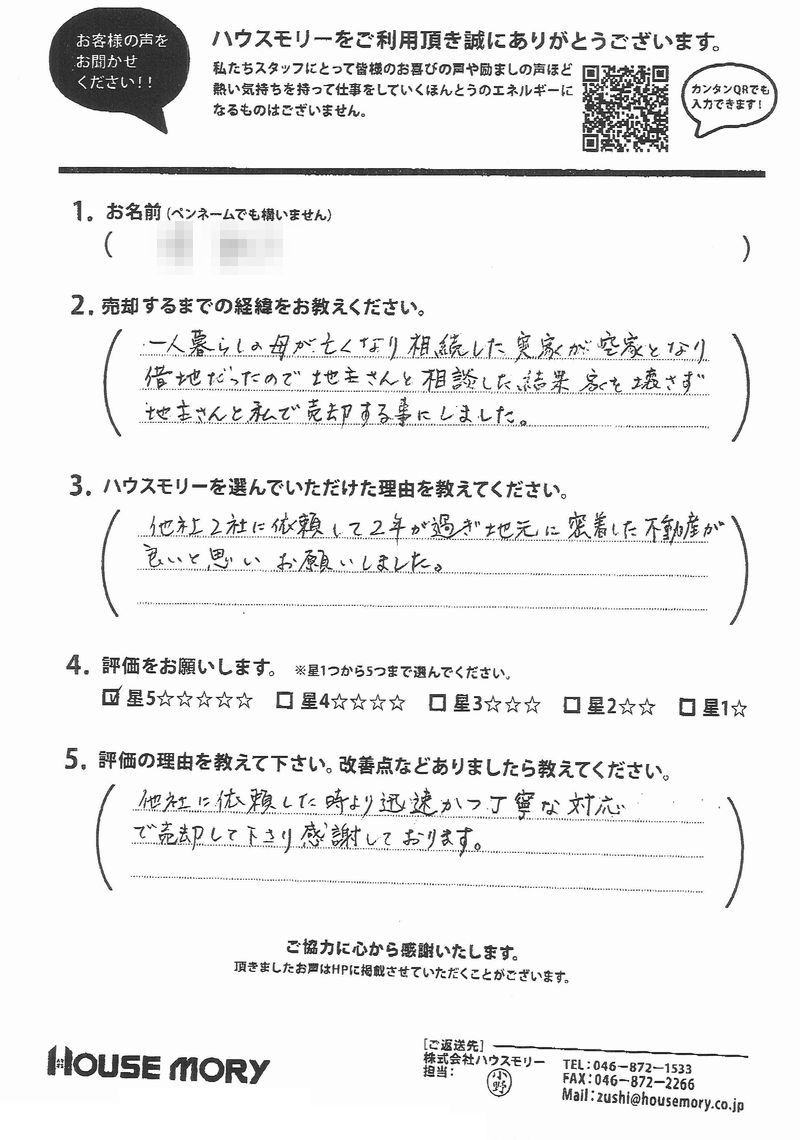 お客様の声を
お聞かせ
ください!!
ハウスモリーをご利用頂き誠にありがとうございます。
私たちスタッフにとって皆様のお喜びの声や励ましの声ほど
熱い気持ちを持って仕事をしていくほんとうのエネルギーに
なるものはございません。
カンタンQRでも
入力できます!
1. お名前(ペンネームでも構いません)
2. 売却するまでの経緯をお教えください。
一人暮らしの母が亡くなり相続した実家が空家となり
借地だったので地主さんと相談した結果 家を壊さず
地主さんと私で売却する事にしました。
3. ハウスモリーを選んでいただけた理由を教えてください。
他社2社に依頼して2年が過ぎ地元に密着した不動産が
良いと思い お願いしました。
4. 評価をお願いします。 ※星1つから5つまで選んでください。
☑ 星5☆☆☆☆☆ □ 星4☆☆☆☆ □ 星3☆☆☆ □ 星2☆☆ □ 星1☆
5. 評価の理由を教えて下さい。改善点などありましたら教えてください。
他社に依頼した時より迅速かつ丁寧な対応
で売却して下さり感謝しております。
ご協力に心から感謝いたします。
頂きましたお声はHPに掲載させていただくことがございます。
HOUSE MORY
[ご返送先]
株式会社ハウスモリー
担当: 小野
TEL:046-872-1533
FAX:046-872-2266
Mail:zushi@housemory.co.jp